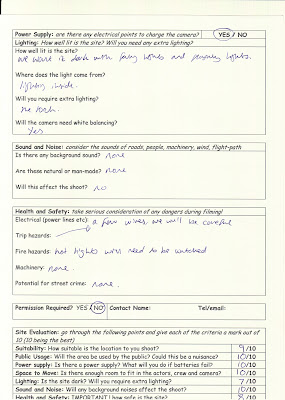 Power Supply: are there any electrical points to charge the camera? YES / NO
Lighting: How well lit is the site? Will you need any extra lighting?
How well lit is the site?
we want it dark with fairy lights and lights.
Where does the light come from?
lighting inside.
Will you require extra lighting?
Will the camera need white balancing?
Yes
Sound and Noise: consider the sounds of roads, people, machinery, wind, flight-path
Is there any background sound? none
Are these natural or man-made? none
Will this affect the shoot? no
Health and Safety: take serious consideration of any dangers during filming!
Electrical (power lines etc) a few wires, we will be careful
Trip hazards:
Fire hazards: hot lights will need to be watched
Machinery: none
Potential for street crime: none.
Permission Required? YES / NO Contact Name: Tel/email:
Site Evaluation: go through the following points and give each of the criteria a mark out
of 10 (10 being the best)
Suitability: How suitable is the location to you shoot? 9/10
Public Usage: Will the area be used by the public? Could this be a nuisance? 10/10
Power supply: Is there a power supply? What will you do if batteries fail? 10/10
Space to Move: Is there enough room to fit in the actors, crew and camera? 10/10
Lighting: Is the site dark? Will you require extra lighting? 7/10
Sound and Noise: Will any background noises affect the shoot? 10/10
Health and Safety: IMPORTANT! how safe is the site? /10